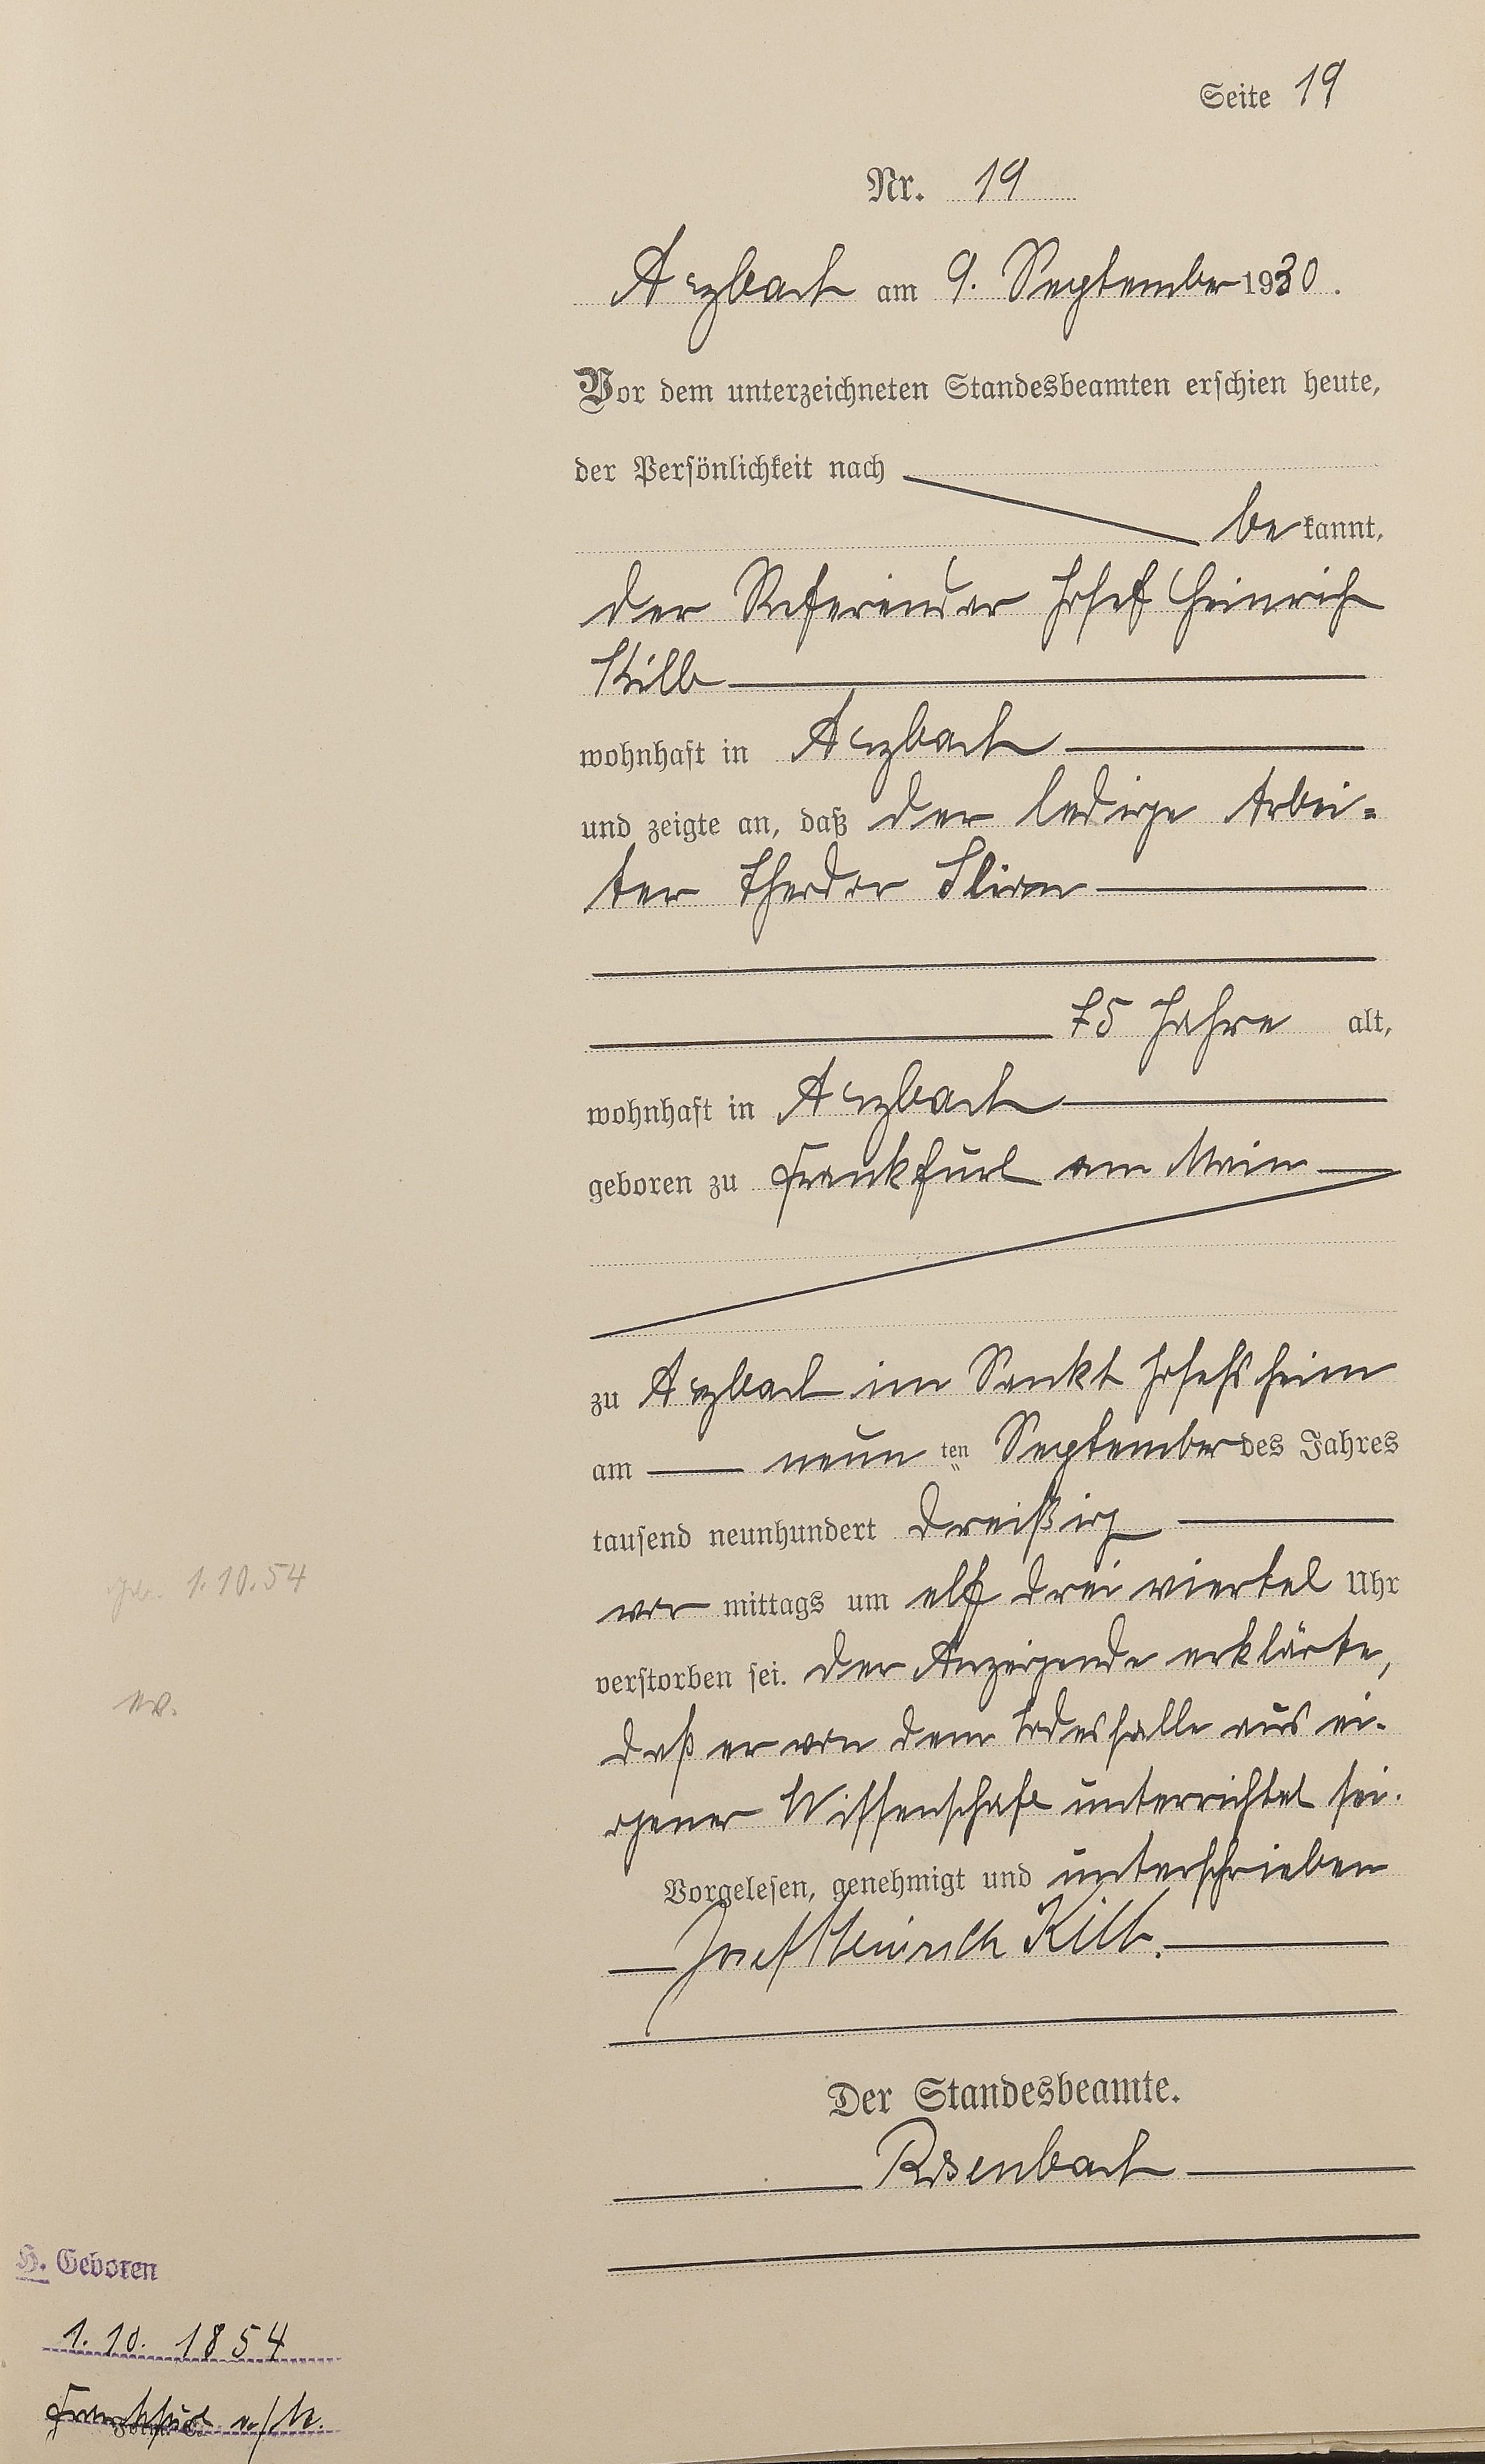 Seite 19
Nr. 19
Arzbach am 9. September 1930.
Vor dem unterzeichneten Standesbeamten erschien heute,
der Persönlichkeit nach
bekannt,
der Referendar Josef Heinrich
Kilb
wohnhaft in Arzbach
und zeigte an, daß der ledige Arbei-
ter Theodor
75 Jahre alt,
wohnhaft in Arzbach
geboren zu Frankfurt am Main
zu Arzbach im Sankt Josefsheim
am neun ten September des Jahres
tausend neunhundert dreißig
vor mittags um elf drei viertel Uhr
verstorben sei. Der Anzeigende erklärte,
daß er von dem Todesfalle aus ei-
gener Wissenschaft unterrichtet sei.
Vorgelesen, genehmigt und unterschrieben
Josef Heinrich Kilb.
Der Standesbeamte.
Rosenbach
geb. 1.10.54
H. Geboren
1.10. 1854
Frankfurt a/M.